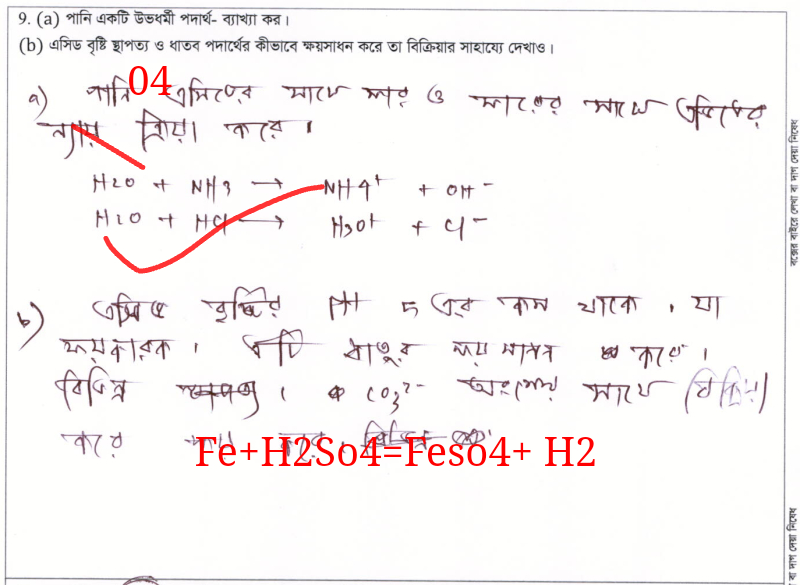 9. (a) পানি একটি উভধর্মী পদার্থ- ব্যাখ্যা কর।
(b) এসিড বৃষ্টি স্থাপত্য ও ধাতব পদার্থের কীভাবে ক্ষয়সাধন করে তা বিক্রিয়ার সাহায্যে দেখাও।
04
a) পানি এসিডের সাথে ক্ষার ও ক্ষারের সাথে এসিডের
ন্যায় ক্রিয়া করে।
H2O + NH3 → NH4+ + OH-
H2O + HCl → H3O+ + Cl-
b) এসিড বৃষ্টির PH 5 এর কম থাকে, যা
ক্ষয়কারক। এটি ধাতুর ক্ষয়সাধন করে।
বিভিন্ন CO3^2- অংশের সাথে বিক্রিয়া
করে করে।
Fe+H2So4=Feso4+ H2
বক্সের বাইরে লেখা বা দাগ দেয়া নিষেধ
বা দাগ দেয়া নিষেধ